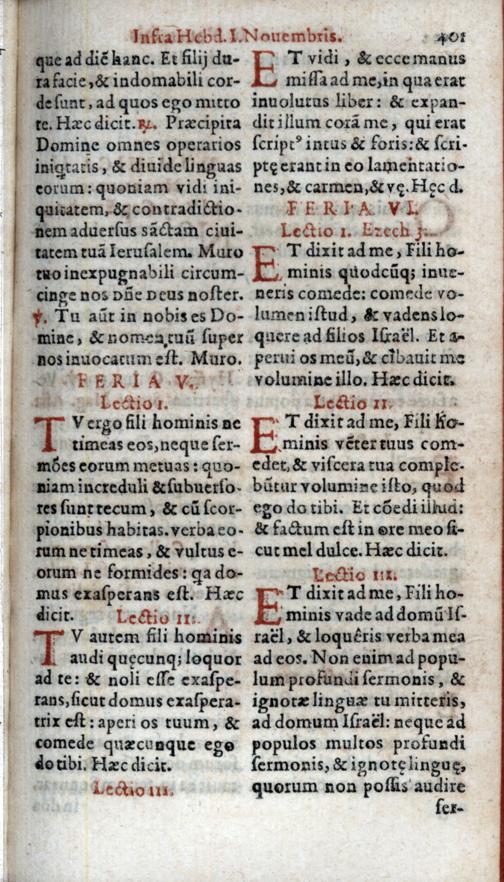 Infra Hebd. I. Nouembris. 401
que ad diē hanc. Et filij du-
ra facie, & indomabili cor-
de sunt, ad quos ego mitto
te. Hæc dicit. ℟. Præcipita
Domine omnes operarios
iniq̃tatis, & diuide linguas
eorum: quoniam vidi ini-
quitatem, & contradictio-
nem aduersus sāctam ciui-
tatem tuā Ierusalem. Muro
tuo inexpugnabili circum-
cinge nos Dñe Deus noster.
℣. Tu aūt in nobis es Do-
mine, & nomen tuū super
nos inuocatum est. Muro.
FERIA V.
Lectio I.
TV ergo fili hominis ne
timeas eos, neque ser-
mões eorum metuas: quo-
niam increduli & subuerso-
res sunt tecum, & cū scor-
pionibus habitas. verba eo-
rum ne timeas, & vultus e-
orum ne formides: qa do-
mus exasperans est. Hæc
dicit. Lectio II.
TV autem fili hominis
audi quęcunq; loquor
ad te: & noli esse exaspe-
rans, sicut domus exaspera-
trix est: aperi os tuum, &
comede quæcunque ego
do tibi. Hæc dicit.
Lectio III.
ET vidi, & ecce manus
missa ad me, in qua erat
inuolutus liber: & expan-
dit illum corā me, qui erat
scriptꝰ intus & foris: & scri-
ptę erant in eo lamentatio-
nes, & carmen, & vę. Hęc d.
FERIA VI.
Lectio I. Ezech 3.
ET dixit ad me, Fili ho-
minis quodcūq; inue-
neris comede: comede vo-
lumen istud, & vadens lo-
quere ad filios Israël. Et a-
perui os meū, & cibauit me
volumine illo. Hæc dicit.
Lectio II.
ET dixit ad me, Fili ho-
minis vēter tuus com-
edet, & viscera tua comple-
būtur volumine isto, quod
ego do tibi. Et cōedi illud:
& factum est in ore meo si-
cut mel dulce. Hæc dicit.
Lectio III.
ET dixit ad me, Fili ho-
minis vade ad domū Is-
raël, & loquêris verba mea
ad eos. Non enim ad popu-
lum profundi sermonis, &
ignotæ linguæ tu mitteris,
ad domum Israël: neque ad
populos multos profundi
sermonis, & ignotę linguę,
quorum non possis audire
ser-